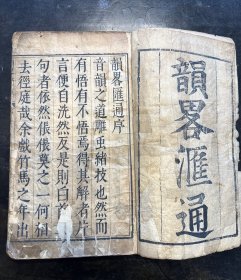 韻畧滙通
韻畧匯通序
音韻之道雕虫緒技也然而
有悟有不悟焉得其解者片
言便自洗然反是則白首
句者依然倀倀墓之一何徊
去徑庭哉余戯竹馬之年出